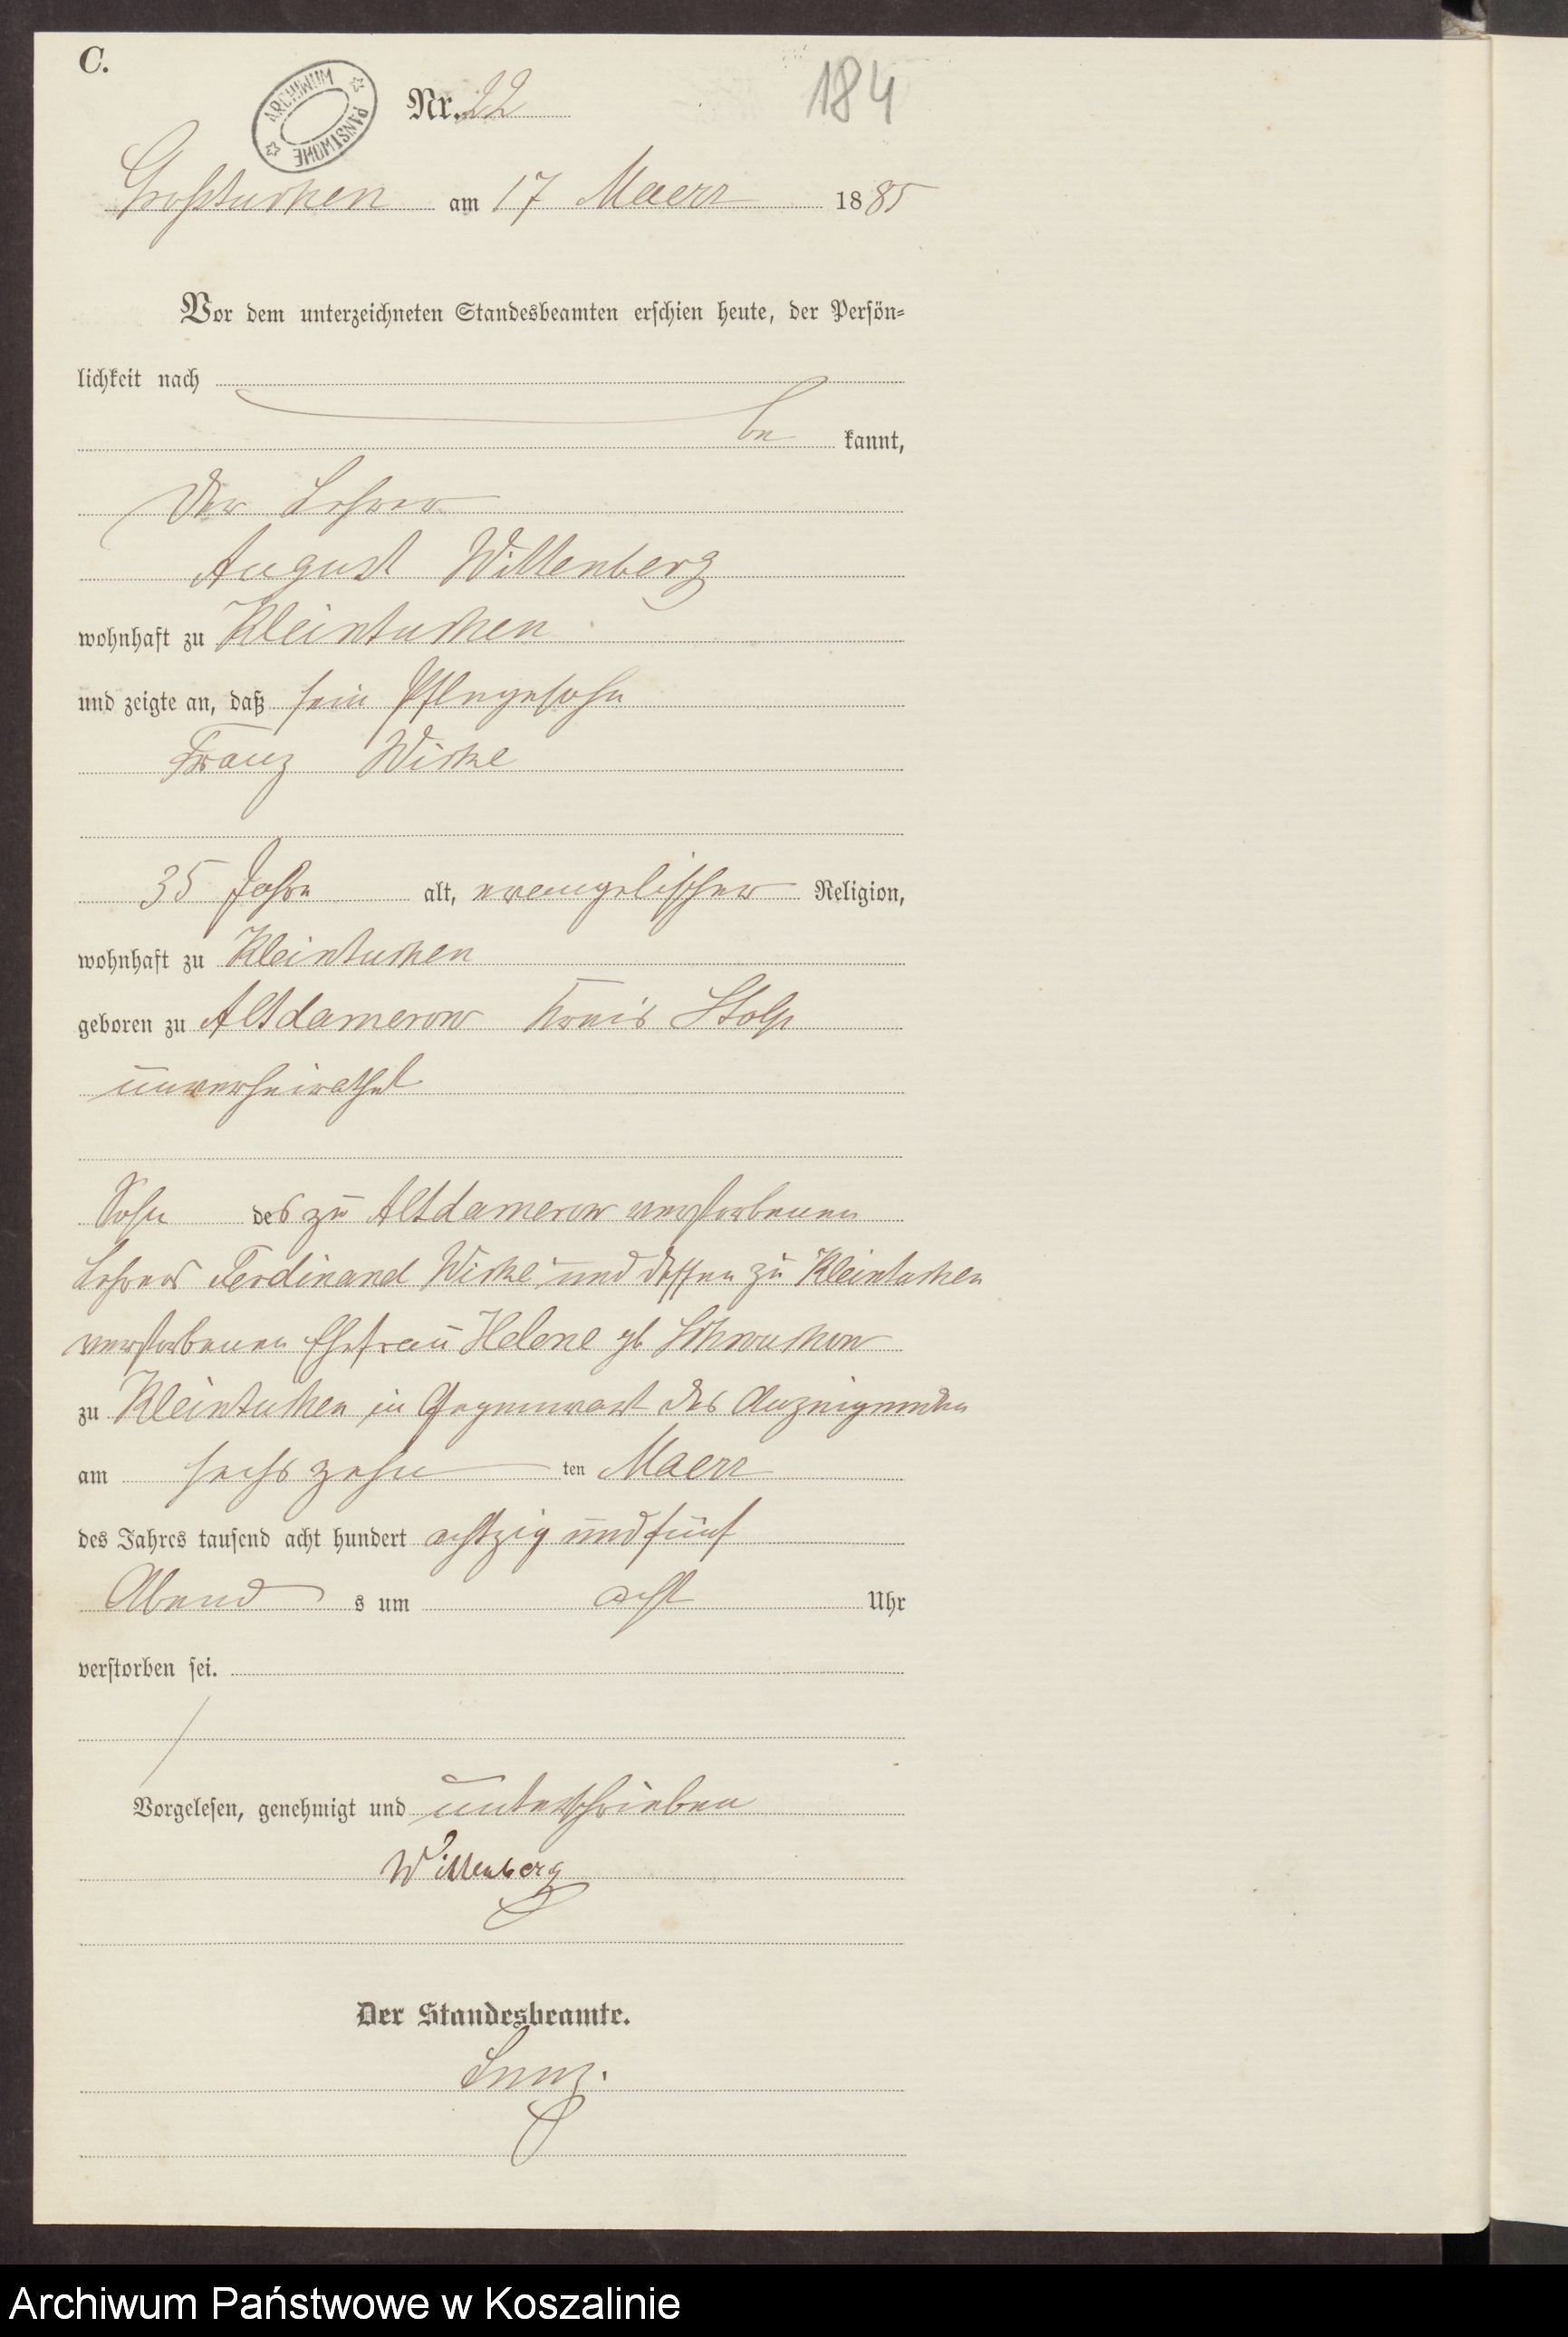 C.
ARCHIWUM PAŃSTWOWE
Nr. 22
184
Großtuchen am 17 Maerz 1885
Vor dem unterzeichneten Standesbeamten erschien heute, der Persön-
lichkeit nach
be kannt,
der Lehrer
August Wittenberg
wohnhaft zu Kleintuchen
und zeigte an, daß sein Pflegesohn
Franz
35 Jahre alt, evangelischer Religion,
wohnhaft zu Kleintuchen
geboren zu Altdamerow Kreis Stolp
unverheirathet
Sohn des zu Altdamerow verstorbenen
Lehrers Ferdinand und dessen zu Kleintuchen
verstorbenen Ehefrau Helene gb
zu Kleintuchen in Gegenwart des Anzeigenden
am sechszehn ten Maerz
des Jahres tausend acht hundert achtzig und fünf
Abend s um acht Uhr
verstorben sei.
Vorgelesen, genehmigt und unterschrieben
Wittenberg
Der Standesbeamte.
Archiwum Państwowe w Koszalinie